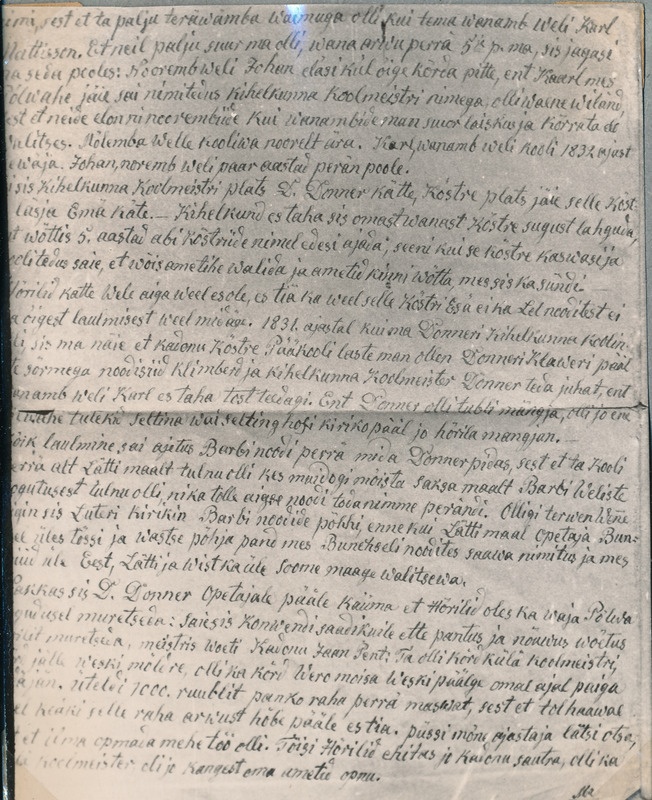 sest et ta palju teräwämba waimuga olli kui tema wanamb weli Karl
Mattisson. Et neil palju suur ma olli, wana arwu perrä 5 p. ma, sis jagasi
na seda pooles: Nooremb weli Johan elasi kül õige kõrda pitte, ent Kaarl mes
Põlwahe jäie sai nimitedus kihelkunna koolmeistri nimega, olli waene wiland,
est et neide elon ni noorembide kui wanambide man suur laiskus ja kõrrata
walitses. Mõlemba welle kooliwa noorelt ära. Karl, wanamb weli kooli 1832 ajast
ewaja. Johan, noremb weli paar aastad perän poole.
sis Kihelkunna Koolmeistri plats D. Donner kätte, Köstre plats jäie selle Köst-
lasja Emä käte. — Kihelkund es taha sis omast wanast Köstre sugust lahguda,
wõttis 5. aastad abi köstriide nimul edesi ajada, seeni kui se köstre kaswasi ja
koolitedus saie, et wõis ametihe walida, ja ametid kinni wõtta, mes sis ka sündi —
Hörilid kätte Wele aiga weel es ole, es tiä ka weel selle Köstri Esä ei ka Lel nooditest ei
a õigest laulmisest weel midäge. 1831. ajastal kui ma Donneri Kihelkunna koolin
li, sis ma näie et kadonu Köstre Pääkooli laste man ollen Donneri Klaweri pääl
sõrmega noodisiid klimberd ja kihelkunna Koolmeister Donner teda juhat, ent
wanamb weli Karl es taha tost teedagi. Ent Donner olli tubli mängja, olli jo enne
tulekit Settina wai Setting hofi kirikо pääl jo hörila mängjan. —
Kõik laulmine sai ajetus Barbi noodi perrä mida Donner pidas, sest et ta kooli
perrä alt Lätti maalt tulnu olli kes muidogi mõista saksa maalt Barbi Weliste
kogutusest tulnu olli, nika tolle aigse noodi todanimme perändi. Olligi terwen Wene
riigin sis Luteri kirikin Barbi noodide pohhi, enne kui Lätti maal Opetaja Bun-
ge üles tõssi ja wastse põhja pand mes Buncheeli noodites saawa nimitus ja mes
nüüd üle Eest, Lätti ja wist ka üle Soome maage walitsewa.
Pasikas sis D. Donner Opetajale pääle käuma et Hörilid oles ka waja Põlwa
muretseda: saie sis Konwendi saadikuile ette pantus ja nõuwus wõetus
muretseda, meistris woeti Kadonu Jaan Pent: Ta olli kõrd külä koolmeistri,
jälle weski molere, olli ka kõrd Wero moisa Weski päälge omal ajal puiga
ajan. üteldi 1000. ruublit panko raha perrä maswat, sest et tol haawal
keäki selle raha arwust hõbe pääle es tia. pussi mõnu ajastaja lätsi otsa,
et ilma opmada mehe töö olli. Toisi Hörilid ehitas jo kadonu sautra, olli ka
koolmeister oli jo kangest oma ametid opnu.
Ma